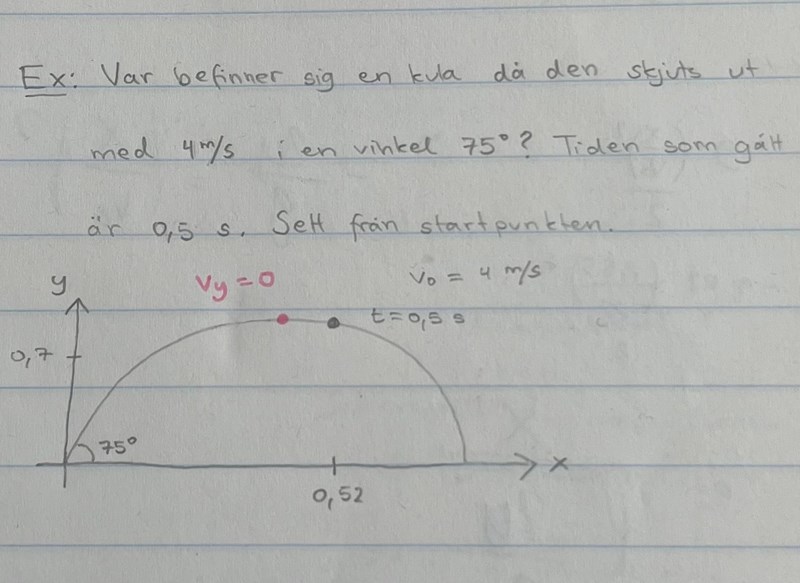 Ex: Var befinner sig en kula då den skjuts ut
med 4 m/s i en vinkel 75°? Tiden som gått
är 0,5 s. Sett från startpunkten.
y
Vy = 0
V₀ = 4 m/s
t = 0,5 s
0,7
75°
x
0,52